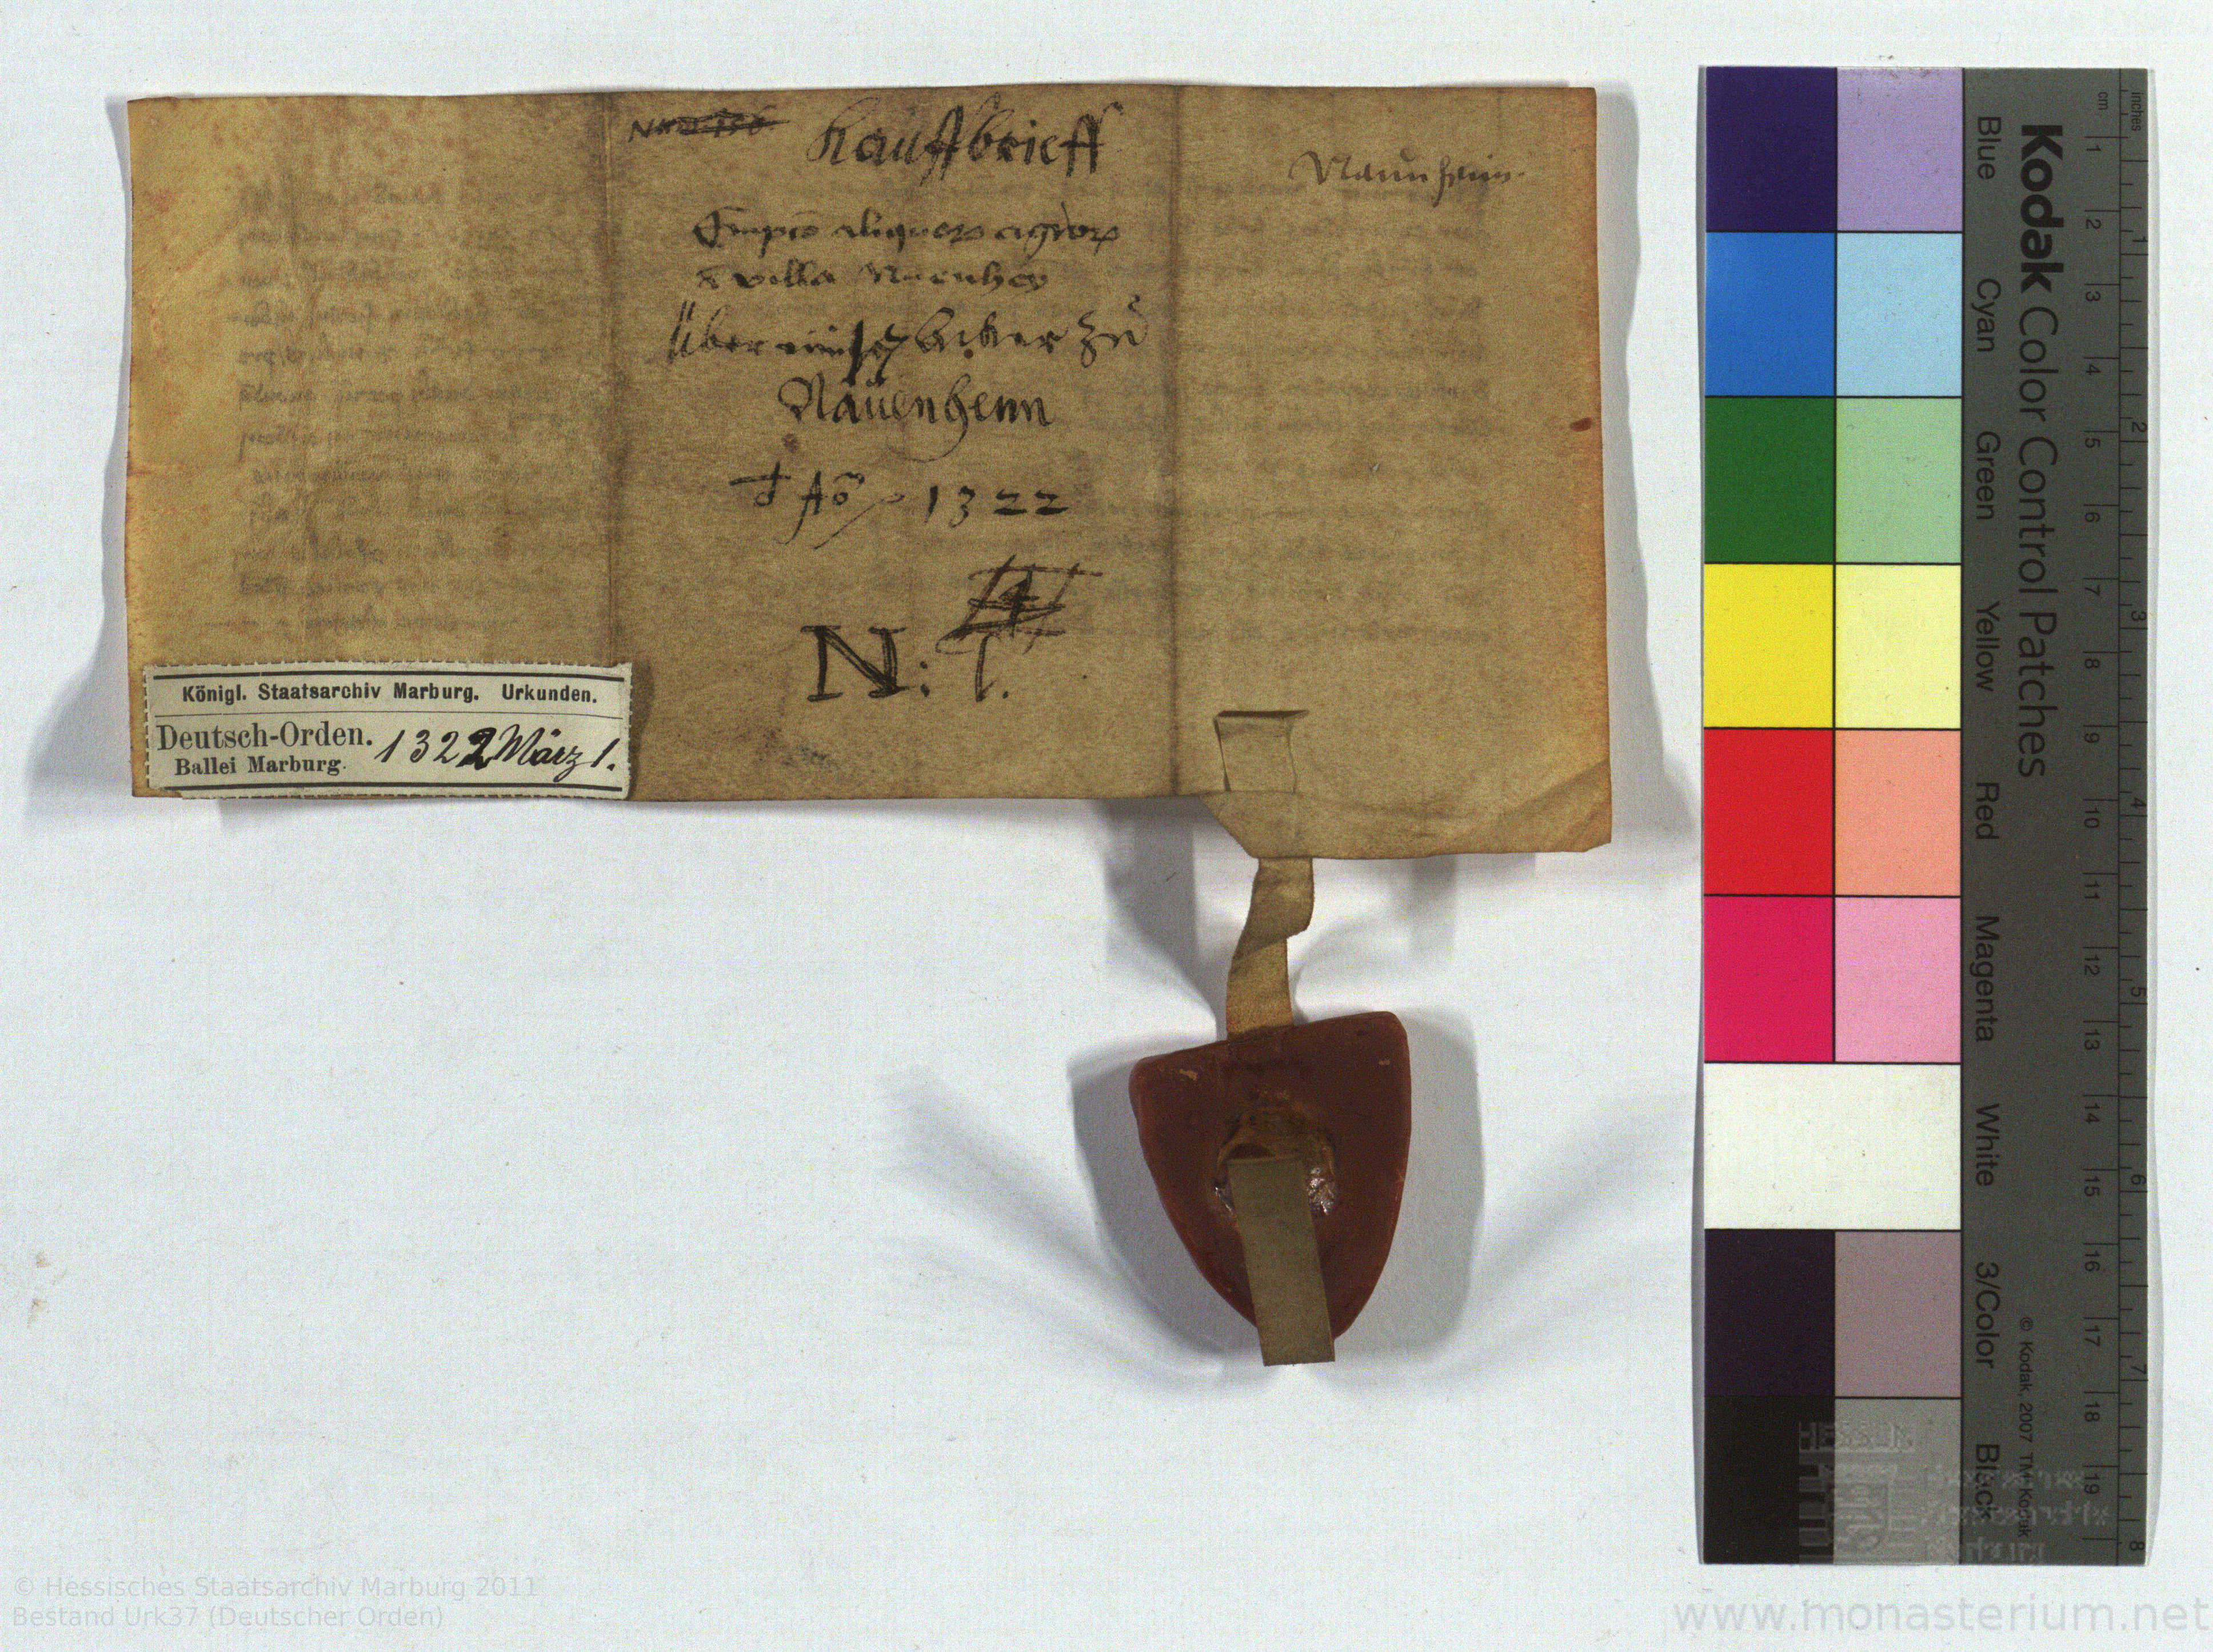 Kauffbrieff
Naunheim.
Empcio aliquorum agrorum
villa Nuenhey
Über einige Äcker zu
Nauenheim
d Ao 1322
N: 1.
Königl. Staatsarchiv Marburg. Urkunden.
Deutsch-Orden. 1322 März 1.
Ballei Marburg.
Kodak Color Control Patches
Blue Cyan Green Yellow Red Magenta White 3/Color Black
© Kodak, 2007 TM: Kodak
cm 1 2 3 4 5 6 7 8 9 10 11 12 13 14 15 16 17 18 19
inches 1 2 3 4 5 6 7 8
© Hessisches Staatsarchiv Marburg 2011
Bestand Urk37 (Deutscher Orden)
www.monasterium.net